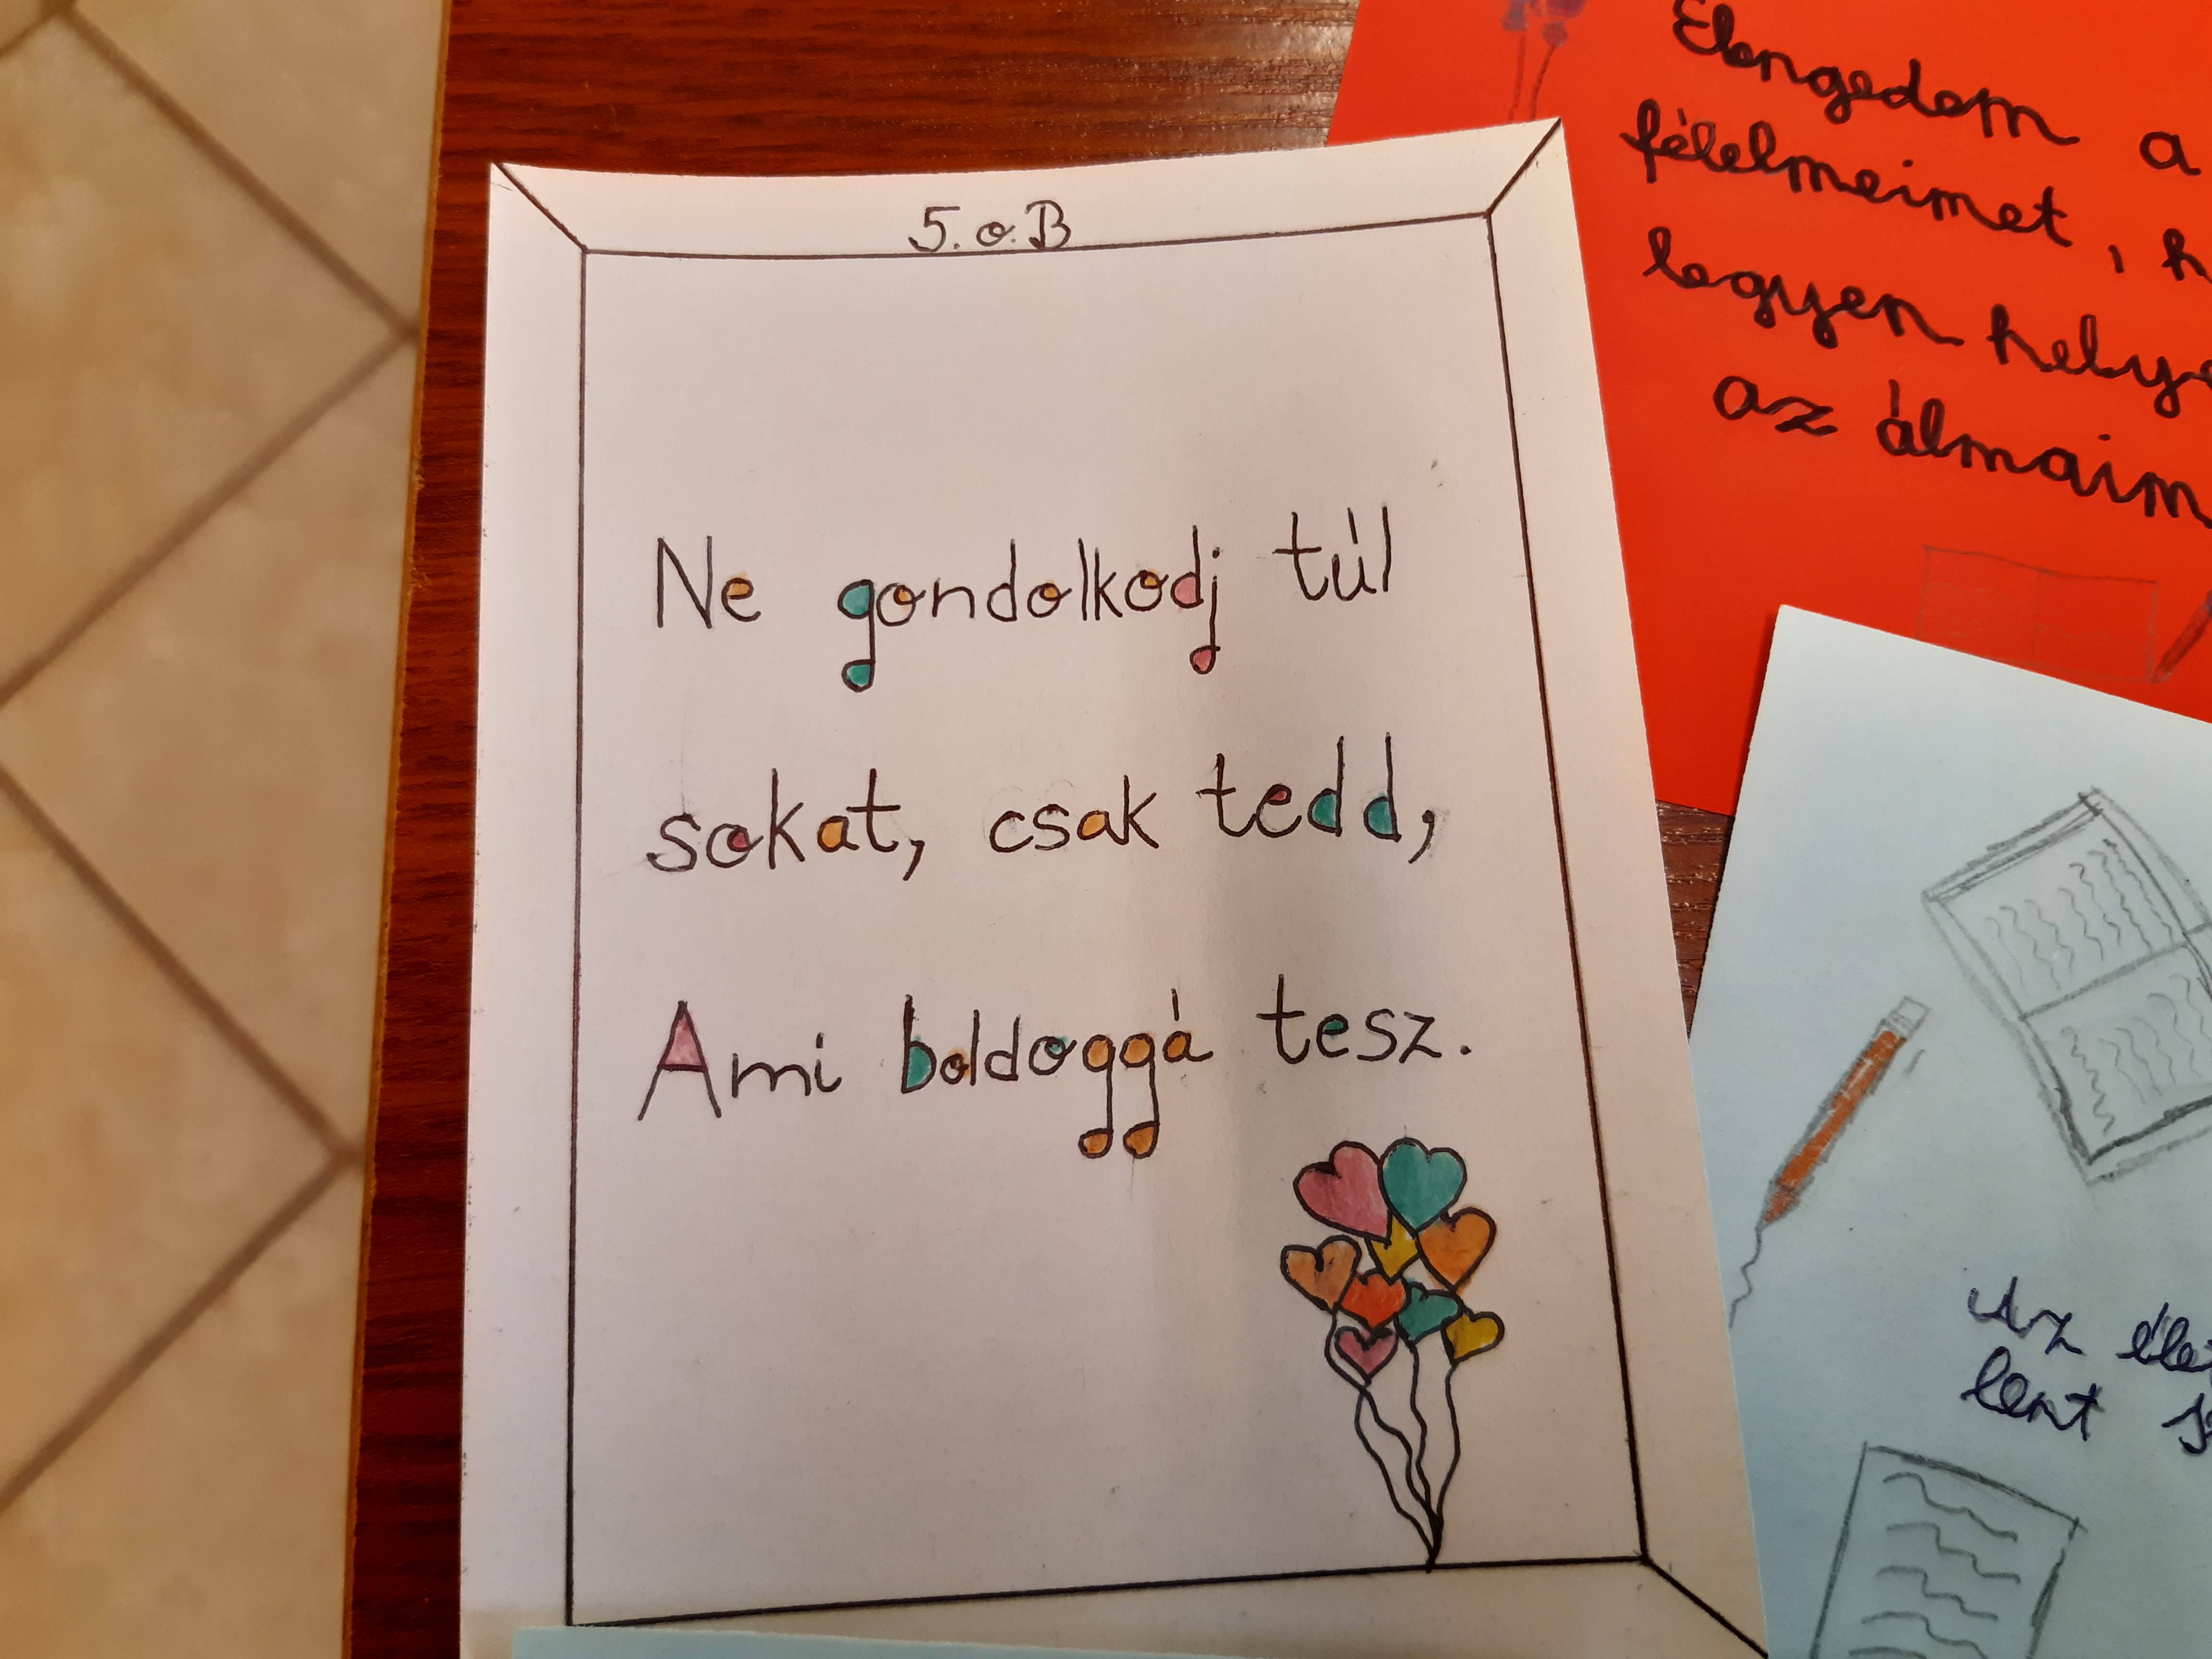 5. o. B
Ne gondolkodj túl
sokat, csak tedd,
Ami boldoggá tesz.
Elengedem a
félelmeimet, h
legyen helye
az álmaim
Az éle
lent s